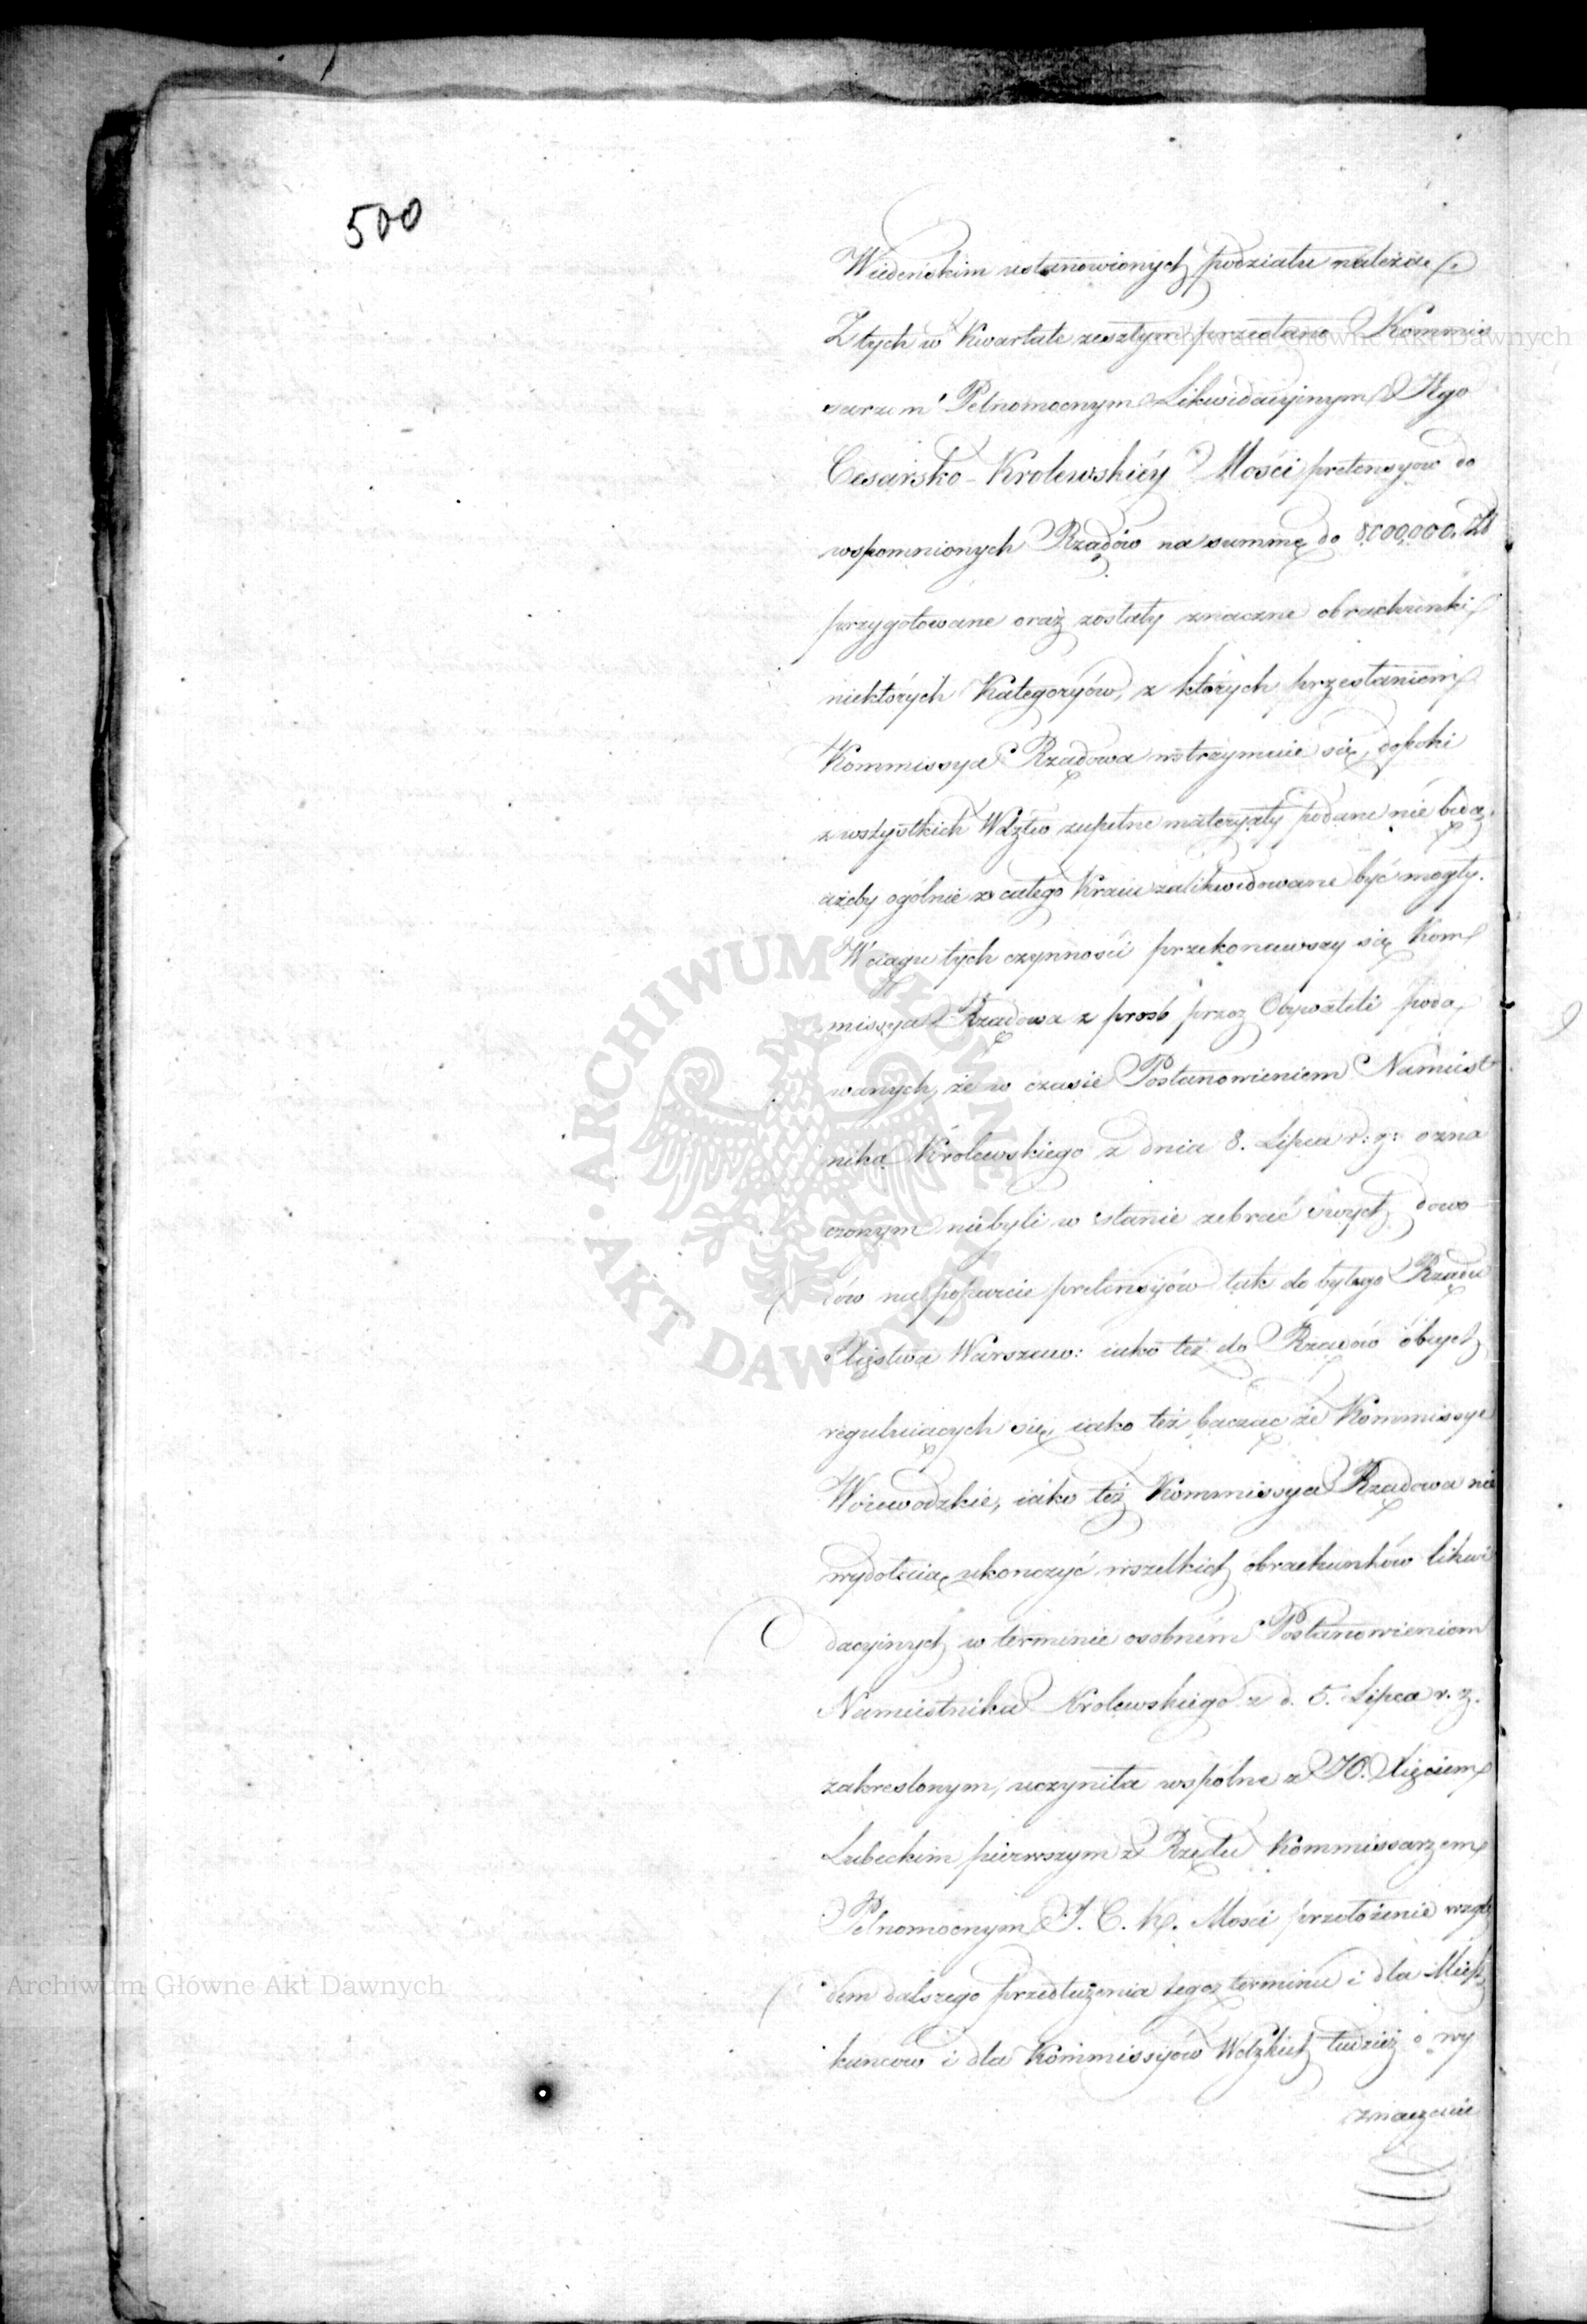 500
Wiedeńskim ustanowionych podziału należą.
Z tych w Kwartale zeszłym przesłano Kommis
sarzom Pełnomocnym Likwidacyinym Jego
Cesarsko-Krolewskiéy Mości pretensyow do
wspomnionych Rządów na summę do 8,700,000. Zł
przygotowane oraz zostały znaczne obrachunki
niektórych Kategoryów, z których przesłaniem
Kommissya Rządowa wstrzymuie się, dopoki
z wszystkich Wdztw zupełne materyały podane nie będą,
ażeby ogólnie z całego Kraiu zalikwidowane być mogły.
W ciągu tych czynności przekonawszy się Kom
missya Rządowa z prosb przez Obywateli poda
wanych, że w czasie Postanowieniem Namiest
nika Królewskiego z dnia 8. Lipca r: z: ozna
czonym niebyli w stanie zebrać swych dowo
dów na poparcie pretensyów tak do byłego Rządu
Xięstwa Warszaw: iako też do Rządów obcych
reguluiących się, iako też bacząc że Kommissye
Woiewodzkie, iako też Kommissya Rządowa nie
wydołaią ukonczyć wszelkich obrachunków likwi
dacyinych w terminie osobném Postanowieniem
Namiestnika Krolewskiego z d. 5. Lipca r. z.
zakreslonym, uczyniła wspólne z JO. Xięciem
Lubeckim pierwszym z Rzędu Kommissarzem
Pełnomocnym J. C. K. Mosci przełożenie wzglę
dem dalszego przedłużenia tegoż terminu i dla Miesz
kancow i dla Kommissyów Wdzkich tudzież o wy
znaczenie
Archiwum Główne Akt Dawnych
Archiwum Główne Akt Dawnych
ARCHIWUM GŁÓWNE
AKT DAWNYCH